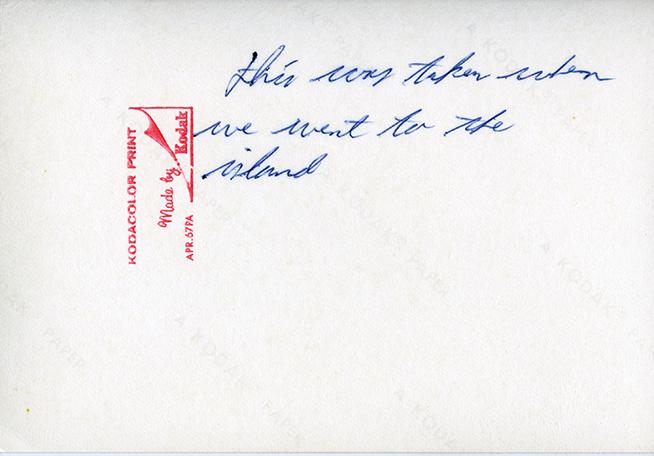 this was taken when
we went to the
island
KODACOLOR PRINT
Made by
Kodak
APR.67PA
A KODAK PAPER
A KODAK PAPER
A KODAK PAPER
A KODAK